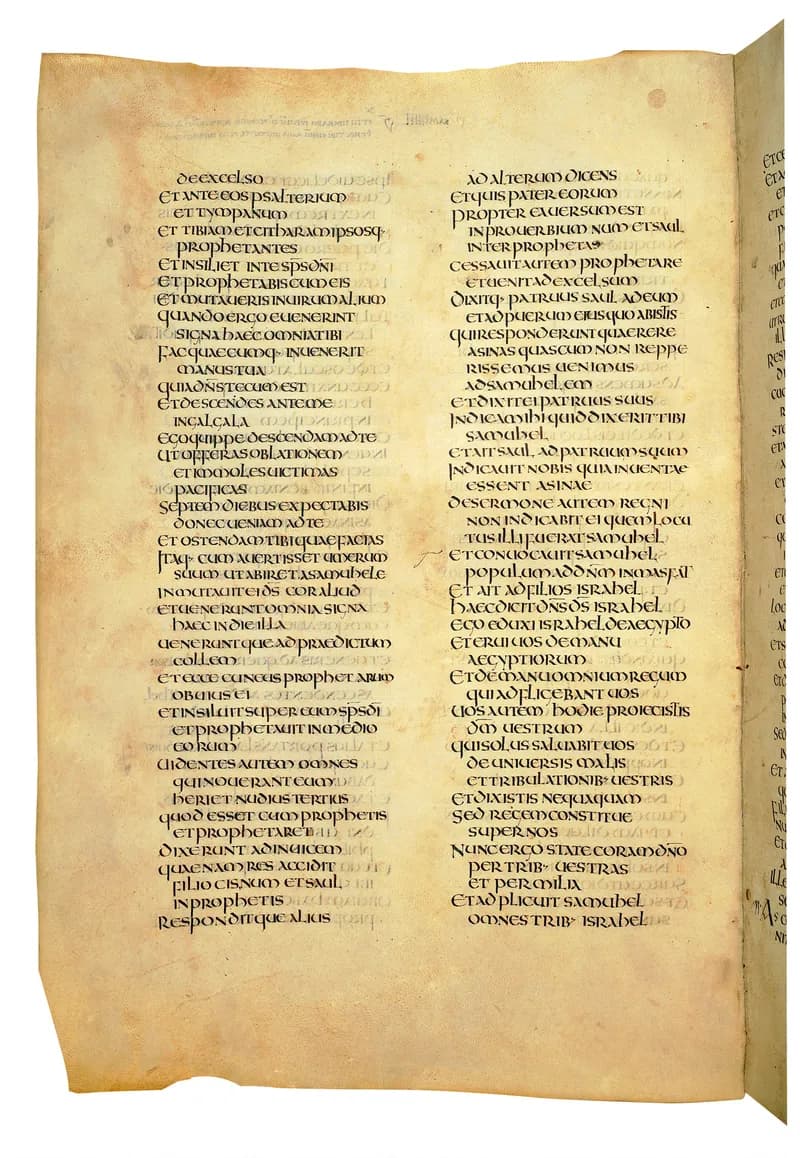 de excelso
et ante eos psalterium
et tympanum
et tibiam et citharam ipsosq·
prophetantes
et insiliet in te sp̅s dn̅i
et prophetabis cum eis
et mutaueris in uirum alium
quando ergo euenerint
signa haec omnia tibi
fac quaecumq· inuenerit
manus tua
quia dn̅s tecum est
et descendes ante me
in galgala
ego quippe descendam ad te
ut offeras oblationem
et immoles uictimas
pacificas
septem diebus expectabis
donec ueniam ad te
et ostendam tibi quae facias
itaq· cum auertisset umerum
suum ut abiret a samuhele
inmutauit ei ds̅ cor aliud
et uenerunt omnia signa
haec in die illa
ueneruntque ad praedictum
collem
et ecce cuneus prophetarum
obuius ei
et insiluit super eum sp̅s di̅
et prophetauit in medio
eorum
uidentes autem omnes
qui nouerant eum
heri et nudius tertius
quod esset cum prophetis
et prophetaret
dixerunt ad inuicem
quaenam res accidit
filio cis num et saul
in prophetis
responditque alius
ad alterum dicens
et quis pater eorum
propter ea uersum est
in prouerbium num et saul
inter prophetas
cessauit autem prophetare
et uenit ad excelsum
dixitq· patruus saul ad eum
et ad puerum eius quo abistis
qui responderunt quaerere
asinas quas cum non reppe
rissemus uenimus
ad samuhelem
et dixit ei patruus suus
indica mihi quid dixerit tibi
samuhel
et ait saul ad patruum suum
indicauit nobis quia inuentae
essent asinae
de sermone autem regni
non indicabit ei quem locu
tus illi fuerat samuhel
et conuocauit samuhel
populum ad dn̅m in masfat
et ait ad filios israhel
haec dicit dn̅s ds̅ israhel
ego eduxi israhel de aegypto
et erui uos de manu
aegyptiorum
et de manu omnium regum
qui adfligebant uos
uos autem hodie proiecistis
dm̅ uestrum
qui solus saluabit uos
de uniuersis malis
et tribulationib· uestris
et dixistis nequaquam
sed regem constitue
super nos
nunc ergo state coram dn̅o
per trib· uestras
et per milia
et adplicuit samuhel
omnes trib· israhel